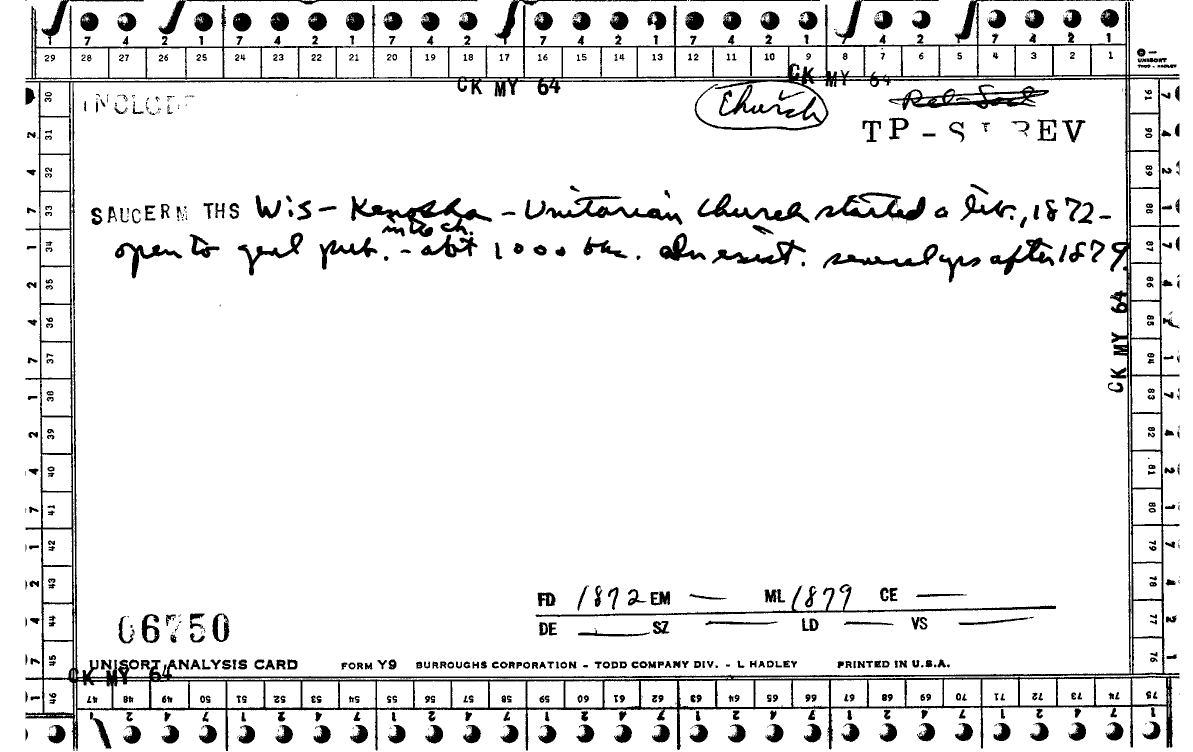 7 4 2 1 7 4 2 1 7 4 2 1 7 4 2 1 7 4 2 1 7 4 2 1
29 28 27 26 25 24 23 22 21 20 19 18 17 16 15 14 13 12 11 10 9 8 7 6 5 4 3 2 1
UNISORT
CK MY 64 CK MY 64
INCLUDE Church
TP-S REV
SAUCERM THS Wis - Kenosha - Unitarian Church started a lib., 1872 -
in the ch.
open to genl pub. - abt 1000 bks. In exist. several yrs after 1879.
CK MY 64
30 31 32 33 34 35 36 37 38 39 40 41 42 43 44 45 46
91 90 89 88 87 86 85 84 83 82 81 80 79 78 77 76 75
FD 1872 EM — ML 1879 CE —
DE — SZ — LD — VS —
06750
UNISORT ANALYSIS CARD FORM Y9 BURROUGHS CORPORATION - TODD COMPANY DIV. - L HADLEY PRINTED IN U.S.A.
CK MY 64
47 48 49 50 51 52 53 54 55 56 57 58 59 60 61 62 63 64 65 66 67 68 69 70 71 72 73 74 75